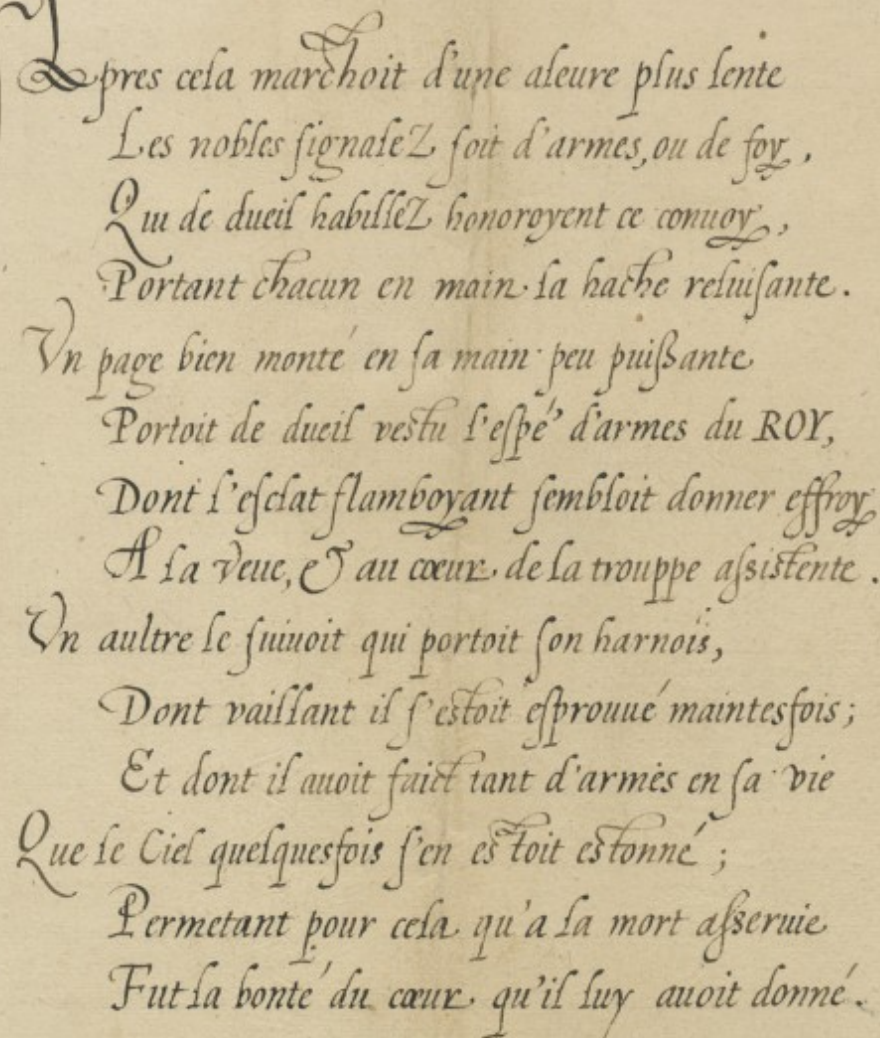 Apres cela marchoit d'une aleure plus lente
Les nobles signalez soit d'armes, ou de foy,
Qui de dueil habillez honoroyent ce conuoy,
Portant chacun en main la hache reluisante.
Vn page bien monté en sa main peu puissante
Portoit de dueil vestu l'espé' d'armes du ROY,
Dont l'esclat flamboyant sembloit donner effroy
A la veue, & au cœur de la trouppe assistente.
Vn aultre le suiuoit qui portoit son harnois,
Dont vaillant il s'estoit esprouué maintesfois;
Et dont il auoit faict tant d'armes en sa vie
Que le Ciel quelquesfois s'en estoit estonné;
Permetant pour cela qu'a la mort asseruie
Fut la bonté du cœur qu'il luy auoit donné.